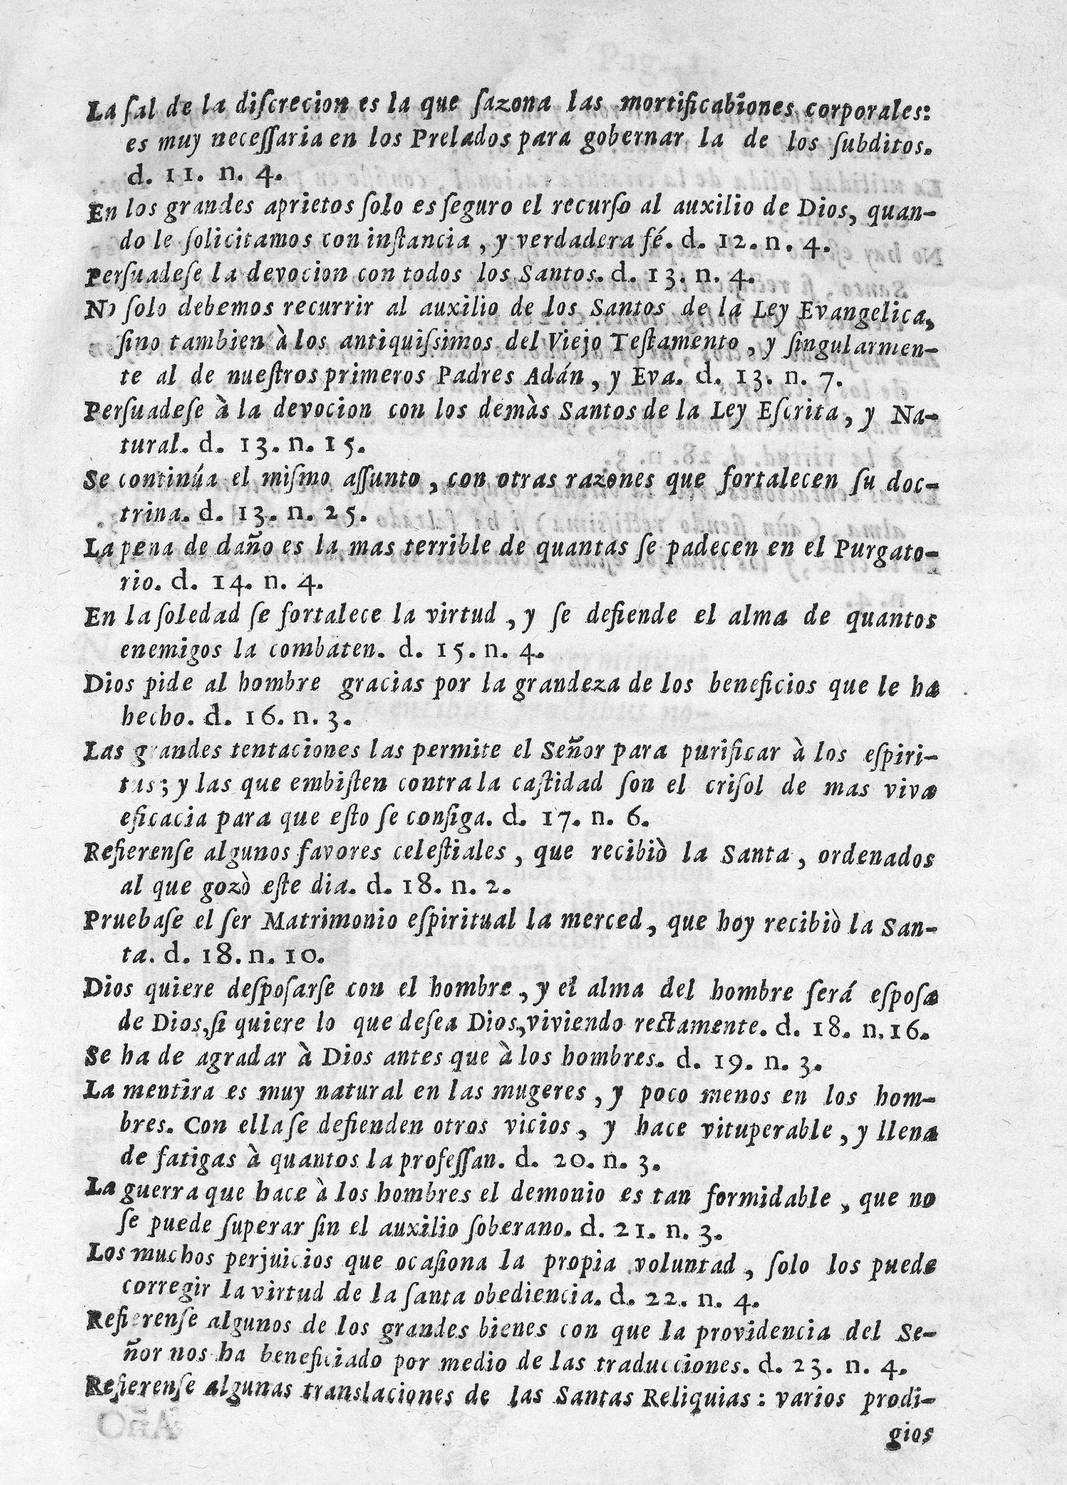 La ſal de la diſcrecion es la que ſazona las mortificabiones corporales:
es muy neceſſaria en los Prelados para gobernar la de los ſubditos.
d. 11. n. 4.
En los grandes aprietos ſolo es ſeguro el recurſo al auxilio de Dios, quan-
do le ſolicitamos con inſtancia, y verdadera fé. d. 12. n. 4.
Perſuadeſe la devocion con todos los Santos. d. 13. n. 4.
No ſolo debemos recurrir al auxilio de los Santos de la Ley Evangelica,
ſino tambien à los antiquiſsimos del Viejo Teſtamento, y ſingularmen-
te al de nueſtros primeros Padres Adán, y Eva. d. 13. n. 7.
Perſuadeſe à la devocion con los demàs Santos de la Ley Eſcrita, y Na-
tural. d. 13. n. 15.
Se continúa el miſmo aſſunto, con otras razones que fortalecen ſu doc-
trina. d. 13. n. 25.
La pena de daño es la mas terrible de quantas ſe padecen en el Purgato-
rio. d. 14. n. 4.
En la ſoledad ſe fortalece la virtud, y ſe defiende el alma de quantos
enemigos la combaten. d. 15. n. 4.
Dios pide al hombre gracias por la grandeza de los beneficios que le ha
hecho. d. 16. n. 3.
Las grandes tentaciones las permite el Señor para purificar à los eſpiri-
tus; y las que embiſten contra la caſtidad ſon el criſol de mas viva
eficacia para que eſto ſe conſiga. d. 17. n. 6.
Refierenſe algunos favores celeſtiales, que recibiò la Santa, ordenados
al que gozò eſte dia. d. 18. n. 2.
Pruebaſe el ſer Matrimonio eſpiritual la merced, que hoy recibiò la San-
ta. d. 18. n. 10.
Dios quiere deſpoſarſe con el hombre, y el alma del hombre ſerá eſpoſa
de Dios, ſi quiere lo que deſea Dios, viviendo rectamente. d. 18. n. 16.
Se ha de agradar à Dios antes que à los hombres. d. 19. n. 3.
La mentira es muy natural en las mugeres, y poco menos en los hom-
bres. Con ella ſe defienden otros vicios, y hace vituperable, y llena
de fatigas à quantos la profeſſan. d. 20. n. 3.
La guerra que hace à los hombres el demonio es tan formidable, que no
ſe puede ſuperar ſin el auxilio ſoberano. d. 21. n. 3.
Los muchos perjuicios que ocaſiona la propia voluntad, ſolo los puede
corregir la virtud de la ſanta obediencia. d. 22. n. 4.
Refierenſe algunos de los grandes bienes con que la providencia del Se-
ñor nos ha beneficiado por medio de las traducciones. d. 23. n. 4.
Refierenſe algunas translaciones de las Santas Reliquias: varios prodi-
gios